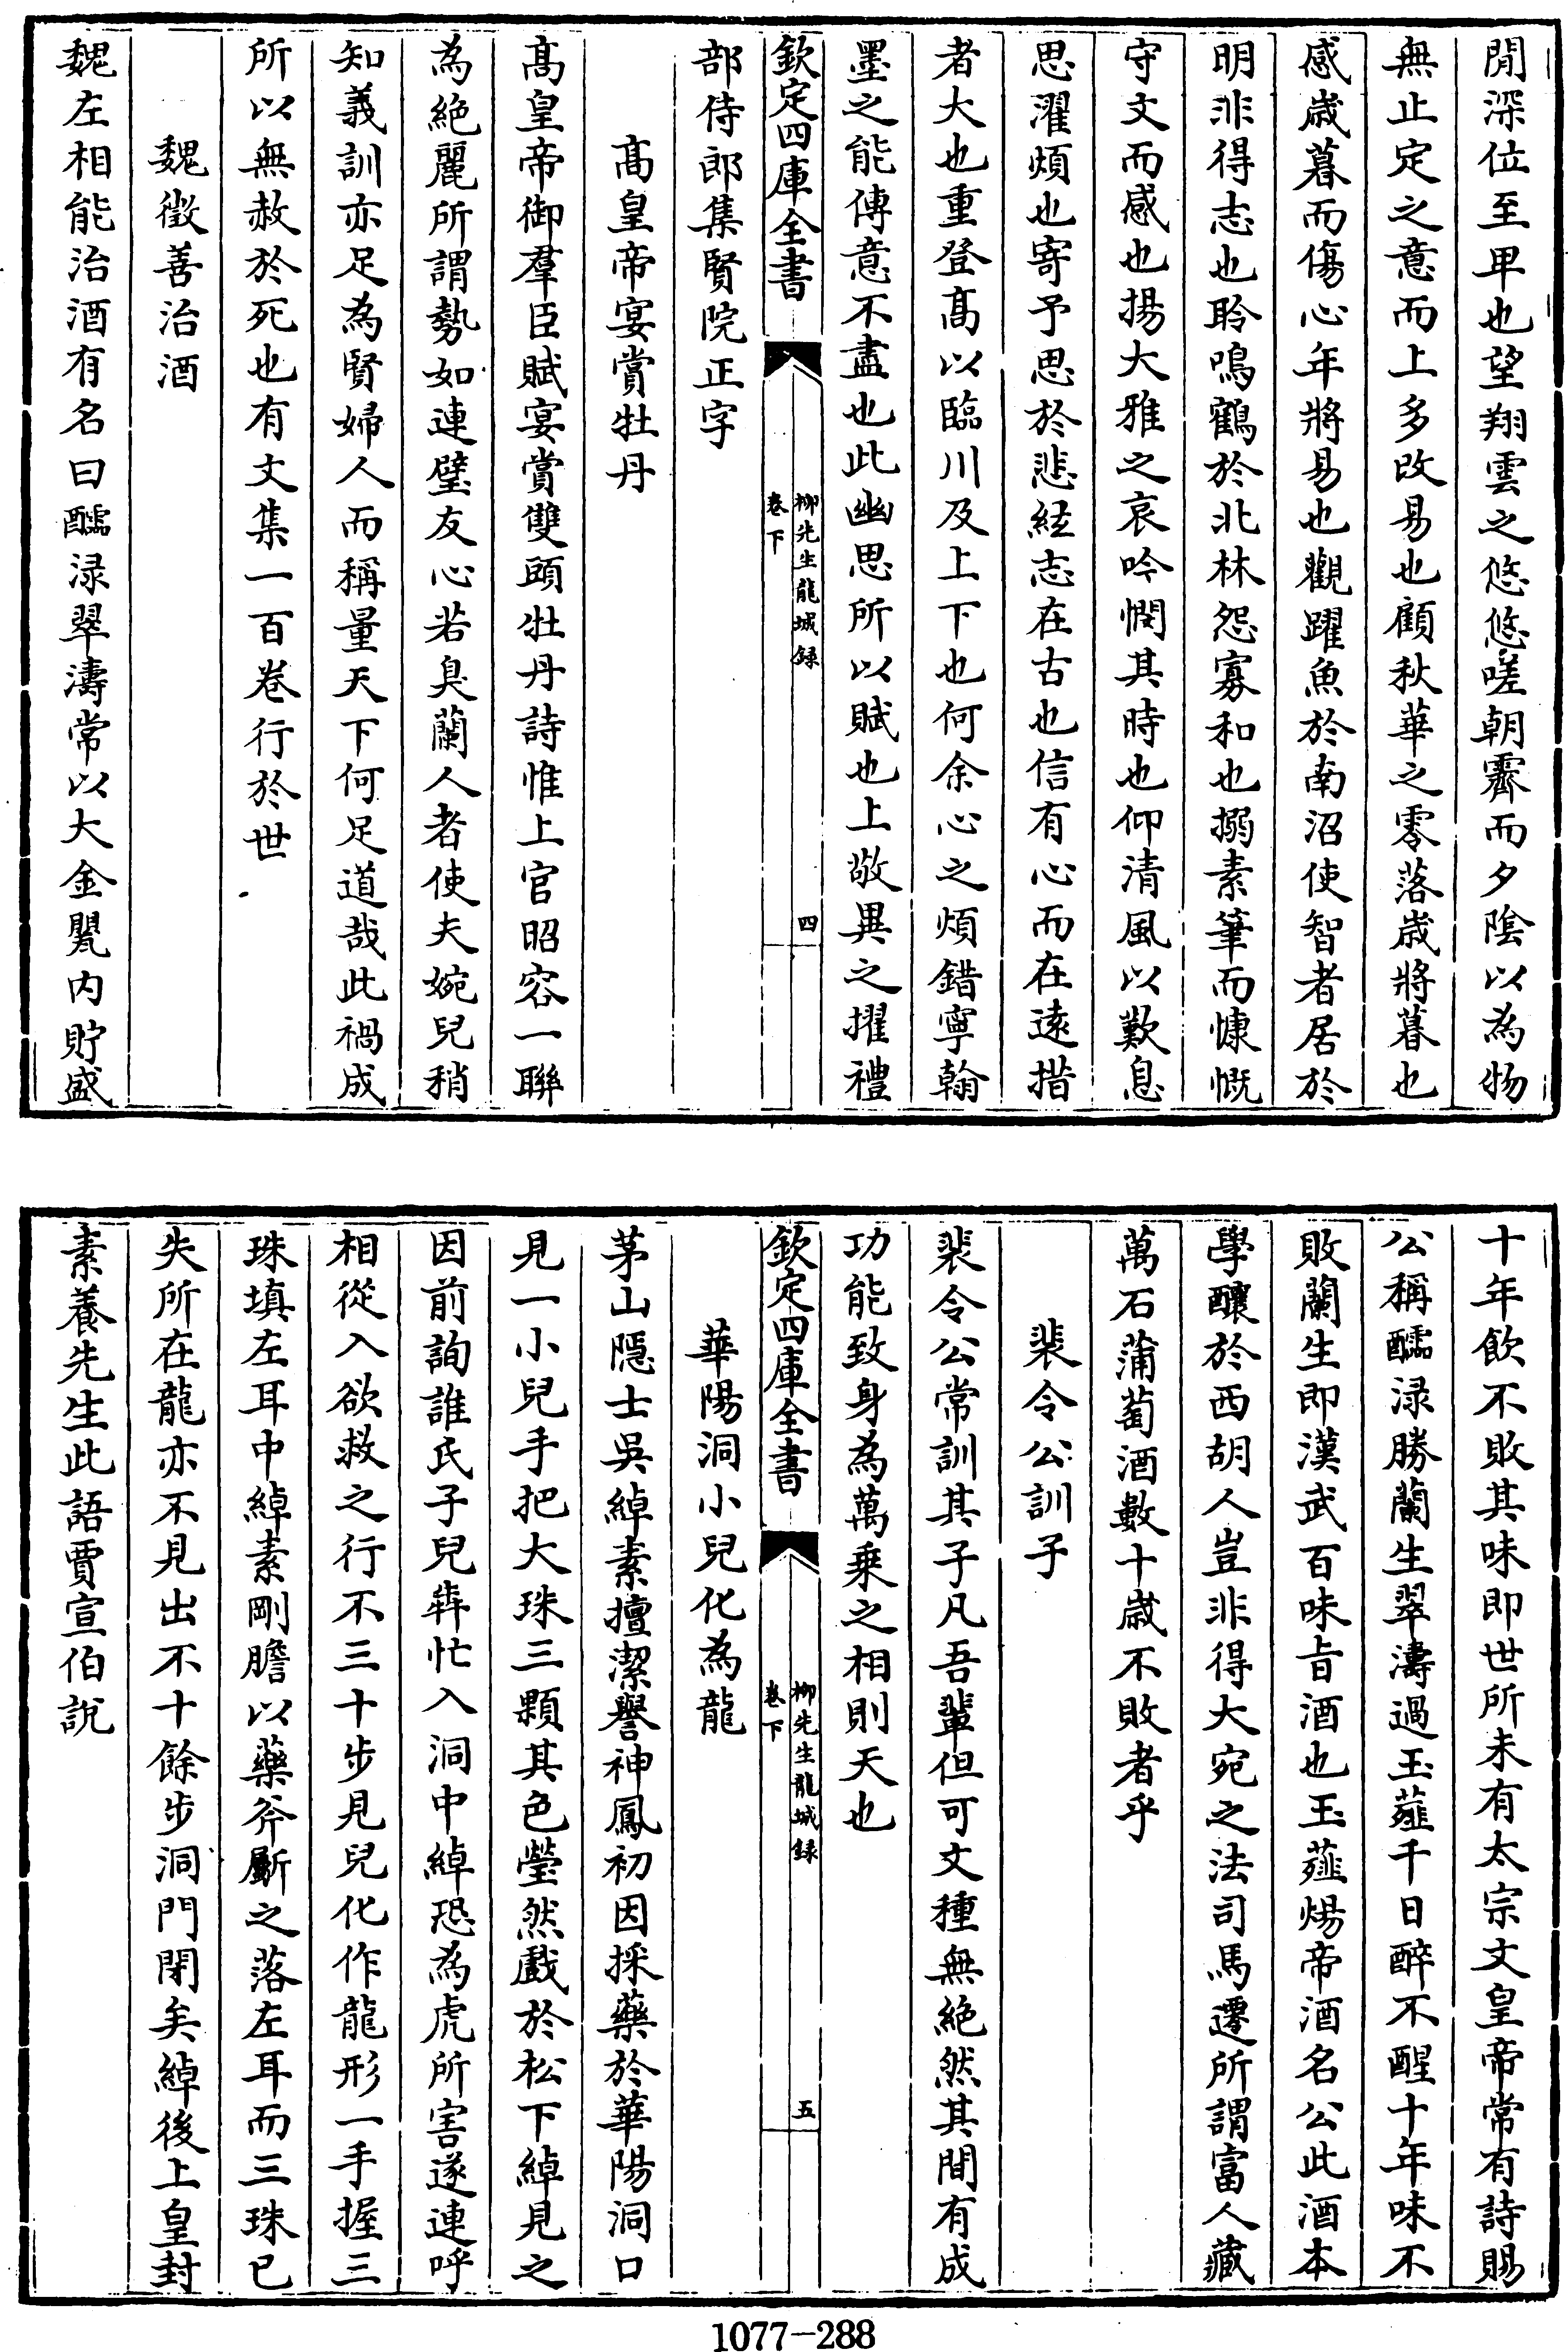 閒深位至卑也望翔雲之悠悠嗟朝霽而夕陰以為物
無止定之意而上多改易也顧秋華之零落歲將暮也
感歲暮而傷心年將易也觀躍魚於南沼使智者居於
明非得志也聆鳴鶴於北林怨寡和也搦素筆而慷慨
守文而感也揚大雅之哀吟憫其時也仰清風以歎息
思濯煩也寄予思於悲絃志在古也信有心而在遠措
者大也重登高以臨川及上下也何余心之煩錯寧翰
墨之能傳意不盡也此幽思所以賦也上敬異之擢禮
欽定四庫全書
柳先生龍城録
卷下
四
部侍郎集賢院正字
高皇帝宴賞牡丹
高皇帝御羣臣賦宴賞雙頭牡丹詩惟上官昭容一聯
為絶麗所謂勢如連璧友心若臭蘭人者使夫婉兒稍
知義訓亦足為賢婦人而稱量天下何足道哉此禍成
所以無赦於死也有文集一百卷行於世
魏徵善治酒
魏左相能治酒有名曰醽渌翠濤常以大金甖内貯盛
十年飲不敗其味即世所未有太宗文皇帝常有詩賜
公稱醽渌勝蘭生翠濤過玉薤千日醉不醒十年味不
敗蘭生即漢武百味旨酒也玉薤煬帝酒名公此酒本
學釀於西胡人豈非得大宛之法司馬遷所謂富人藏
萬石蒲萄酒數十歲不敗者乎
裴令公訓子
裴令公常訓其子凡吾輩但可文種無絶然其間有成
功能致身為萬乗之相則天也
欽定四庫全書
柳先生龍城録
卷下
五
華陽洞小兒化為龍
茅山隱士吳綽素擅潔譽神鳳初因採藥於華陽洞口
見一小兒手把大珠三顆其色瑩然戲於松下綽見之
因前詢誰氏子兒犇忙入洞中綽恐為虎所害遂連呼
相從入欲救之行不三十步見兒化作龍形一手握三
珠填左耳中綽素剛膽以藥斧斸之落左耳而三珠已
失所在龍亦不見出不十餘步洞門閉矣綽後上皇封
素養先生此語賈宣伯說
1077-288